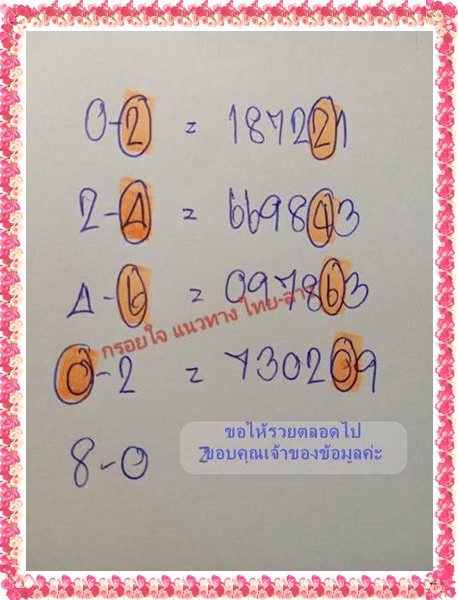 0-2 = 187221
2-4 = 669843
4-6 = 097863
กรอยใจ แนวทาง ไทย-ลาว
0-2 = 730209
ขอให้รวยตลอดไป
8-0 =
ขอบคุณเจ้าของข้อมูลค่ะ